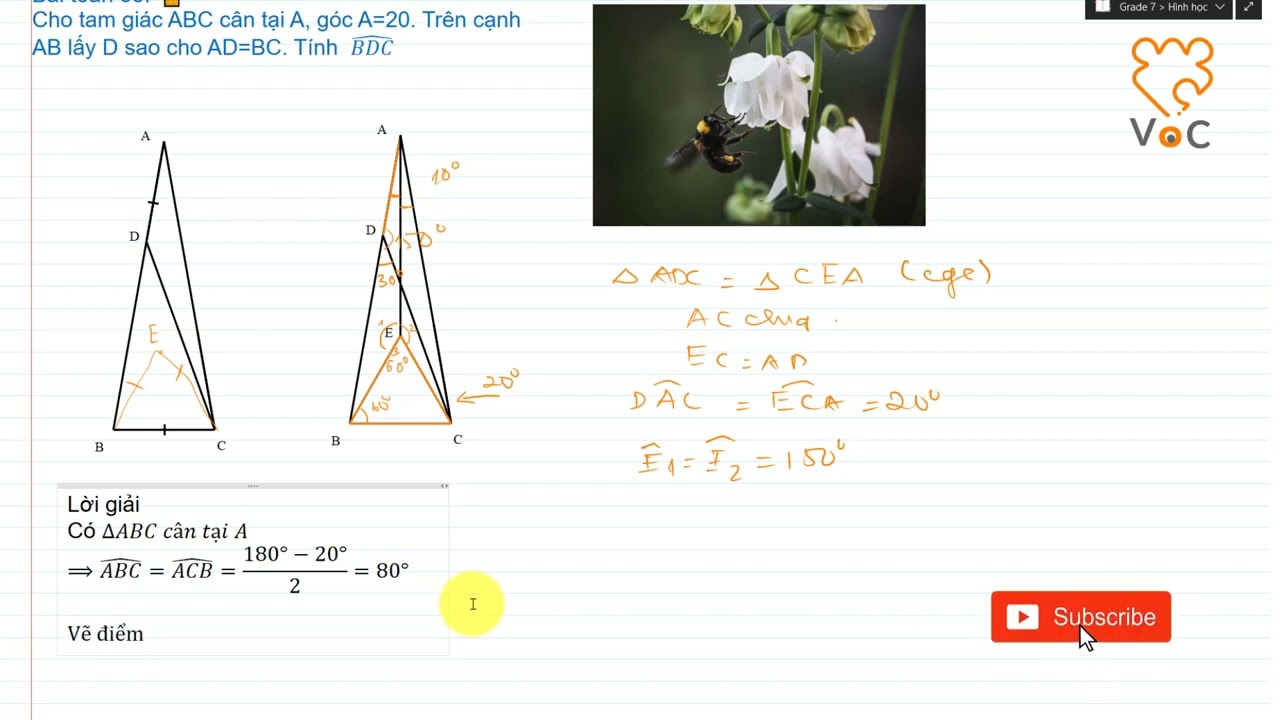 Cho tam giác ABC cân tại A, góc A=20. Trên cạnh
AB lấy D sao cho AD=BC. Tính BDC
Grade 7 > Hình học
VoC
A
D
E
B
C
A
10°
D
150°
30
1
E
2
3
60°
60°
20°
B
C
Δ ADC = Δ CEA (cgc)
AC chung
EC = AD
DAC = ECA = 20°
E1 = E2 = 150°
Lời giải
Có ΔABC cân tại A
⟹ ABC = ACB = (180° − 20°)/2 = 80°
Vẽ điểm
Subscribe